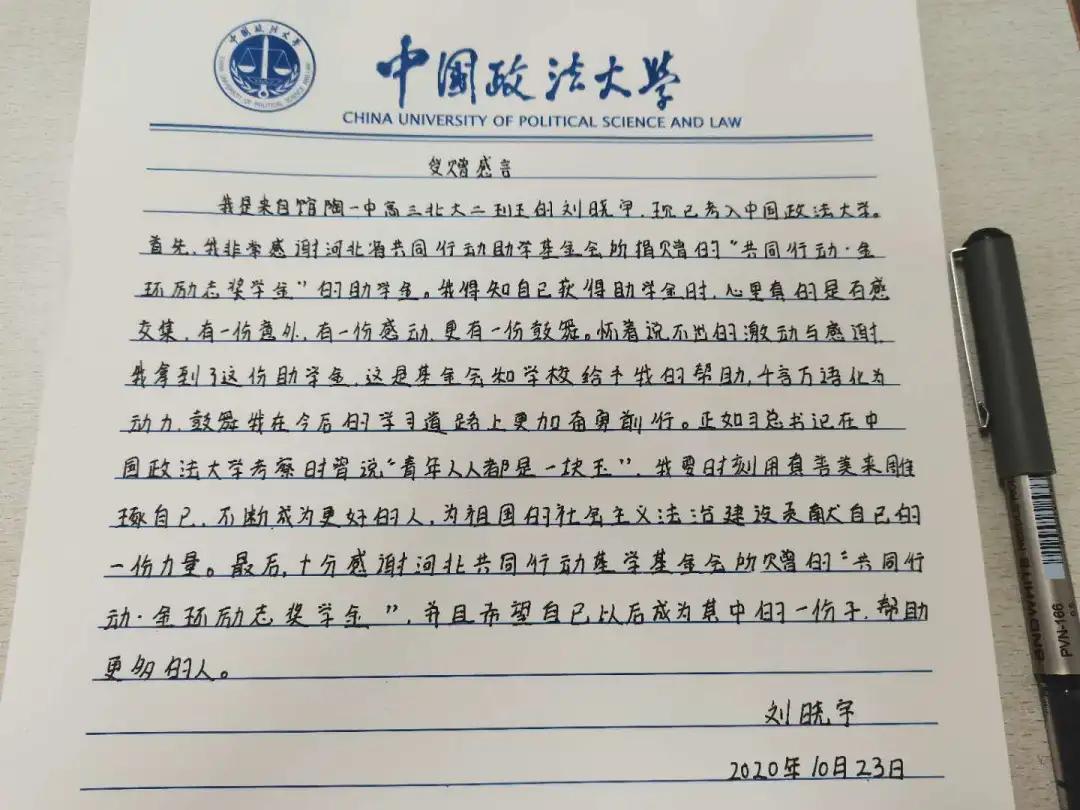 中国政法大学
CHINA UNIVERSITY OF POLITICAL SCIENCE AND LAW
中国政法大学
CHINA UNIVERSITY OF POLITICAL SCIENCE AND LAW
受赠感言
我是来自馆陶一中高三北大二班的刘晓宇，现已考入中国政法大学。
首先，我非常感谢河北省共同行动助学基金会所捐赠的“共同行动·金
环励志奖学金”的助学金。我得知自己获得助学金时，心里真的是百感
交集，有一份意外，有一份感动，更有一份鼓舞。怀着说不出的激动与感谢，
我拿到了这份助学金，这是基金会和学校给予我的帮助，千言万语化为
动力，鼓舞我在今后的学习道路上更加奋勇前行。正如习总书记在中
国政法大学考察时曾说“青年人人都是一块玉”，我要时刻用真善美来雕
琢自己，不断成为更好的人，为祖国的社会主义法治建设贡献自己的
一份力量。最后，十分感谢河北共同行动基学基金会所赠的“共同行
动·金环励志奖学金”，并且希望自己以后成为其中的一份子，帮助
更多的人。
刘晓宇
2020年10月23日
SNOWHITE
PVN-166